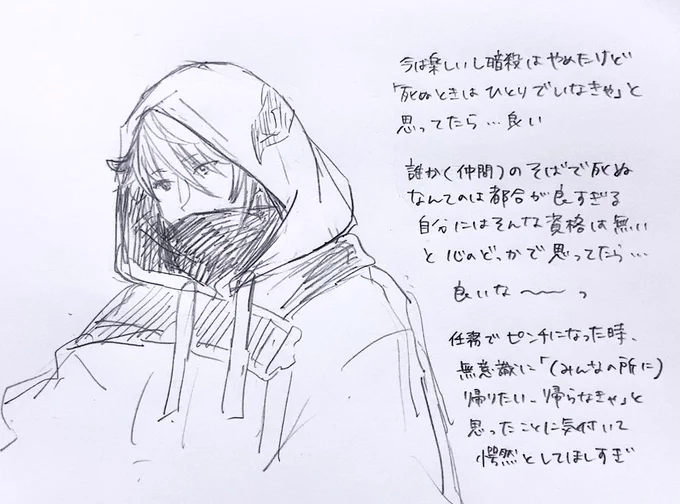 今は楽しいし暗殺はやめたけど
「死ぬときはひとりでいなきゃ」と
思ってたら…良い
誰か(仲間)のそばで死ぬ
なんてのは都合が良すぎる
自分にはそんな資格は無い
と心のどっかで思ってたら…
良いな〜〜っ
任務でピンチになった時、
無意識に「(みんなの所に)
帰りたい、帰らなきゃ」と
思ったことに気付いて
愕然としてほしすぎ